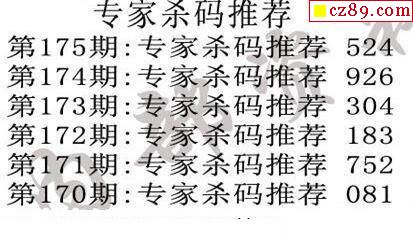 cz89.com
专家杀码推荐
第175期:专家杀码推荐 524
第174期:专家杀码推荐 926
第173期:专家杀码推荐 304
第172期:专家杀码推荐 183
第171期:专家杀码推荐 752
第170期:专家杀码推荐 081